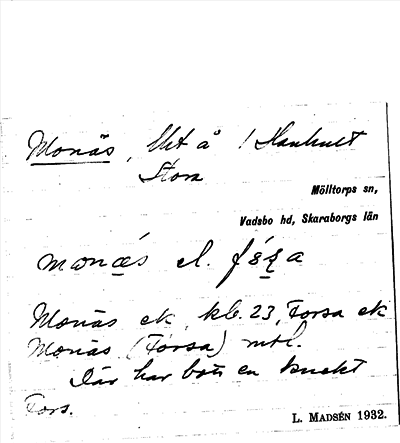 Monäs, Ht å / Hanhult
Stora
Mölltorps sn,
Vadsbo hd, Skaraborgs län
monæs el. fɔ́ʂa
Monäs ek, kb. 23, Forsa ek
Monäs (Forsa) mtl.
Där har bott en knekt
Fors.
L. MADSÉN 1932.